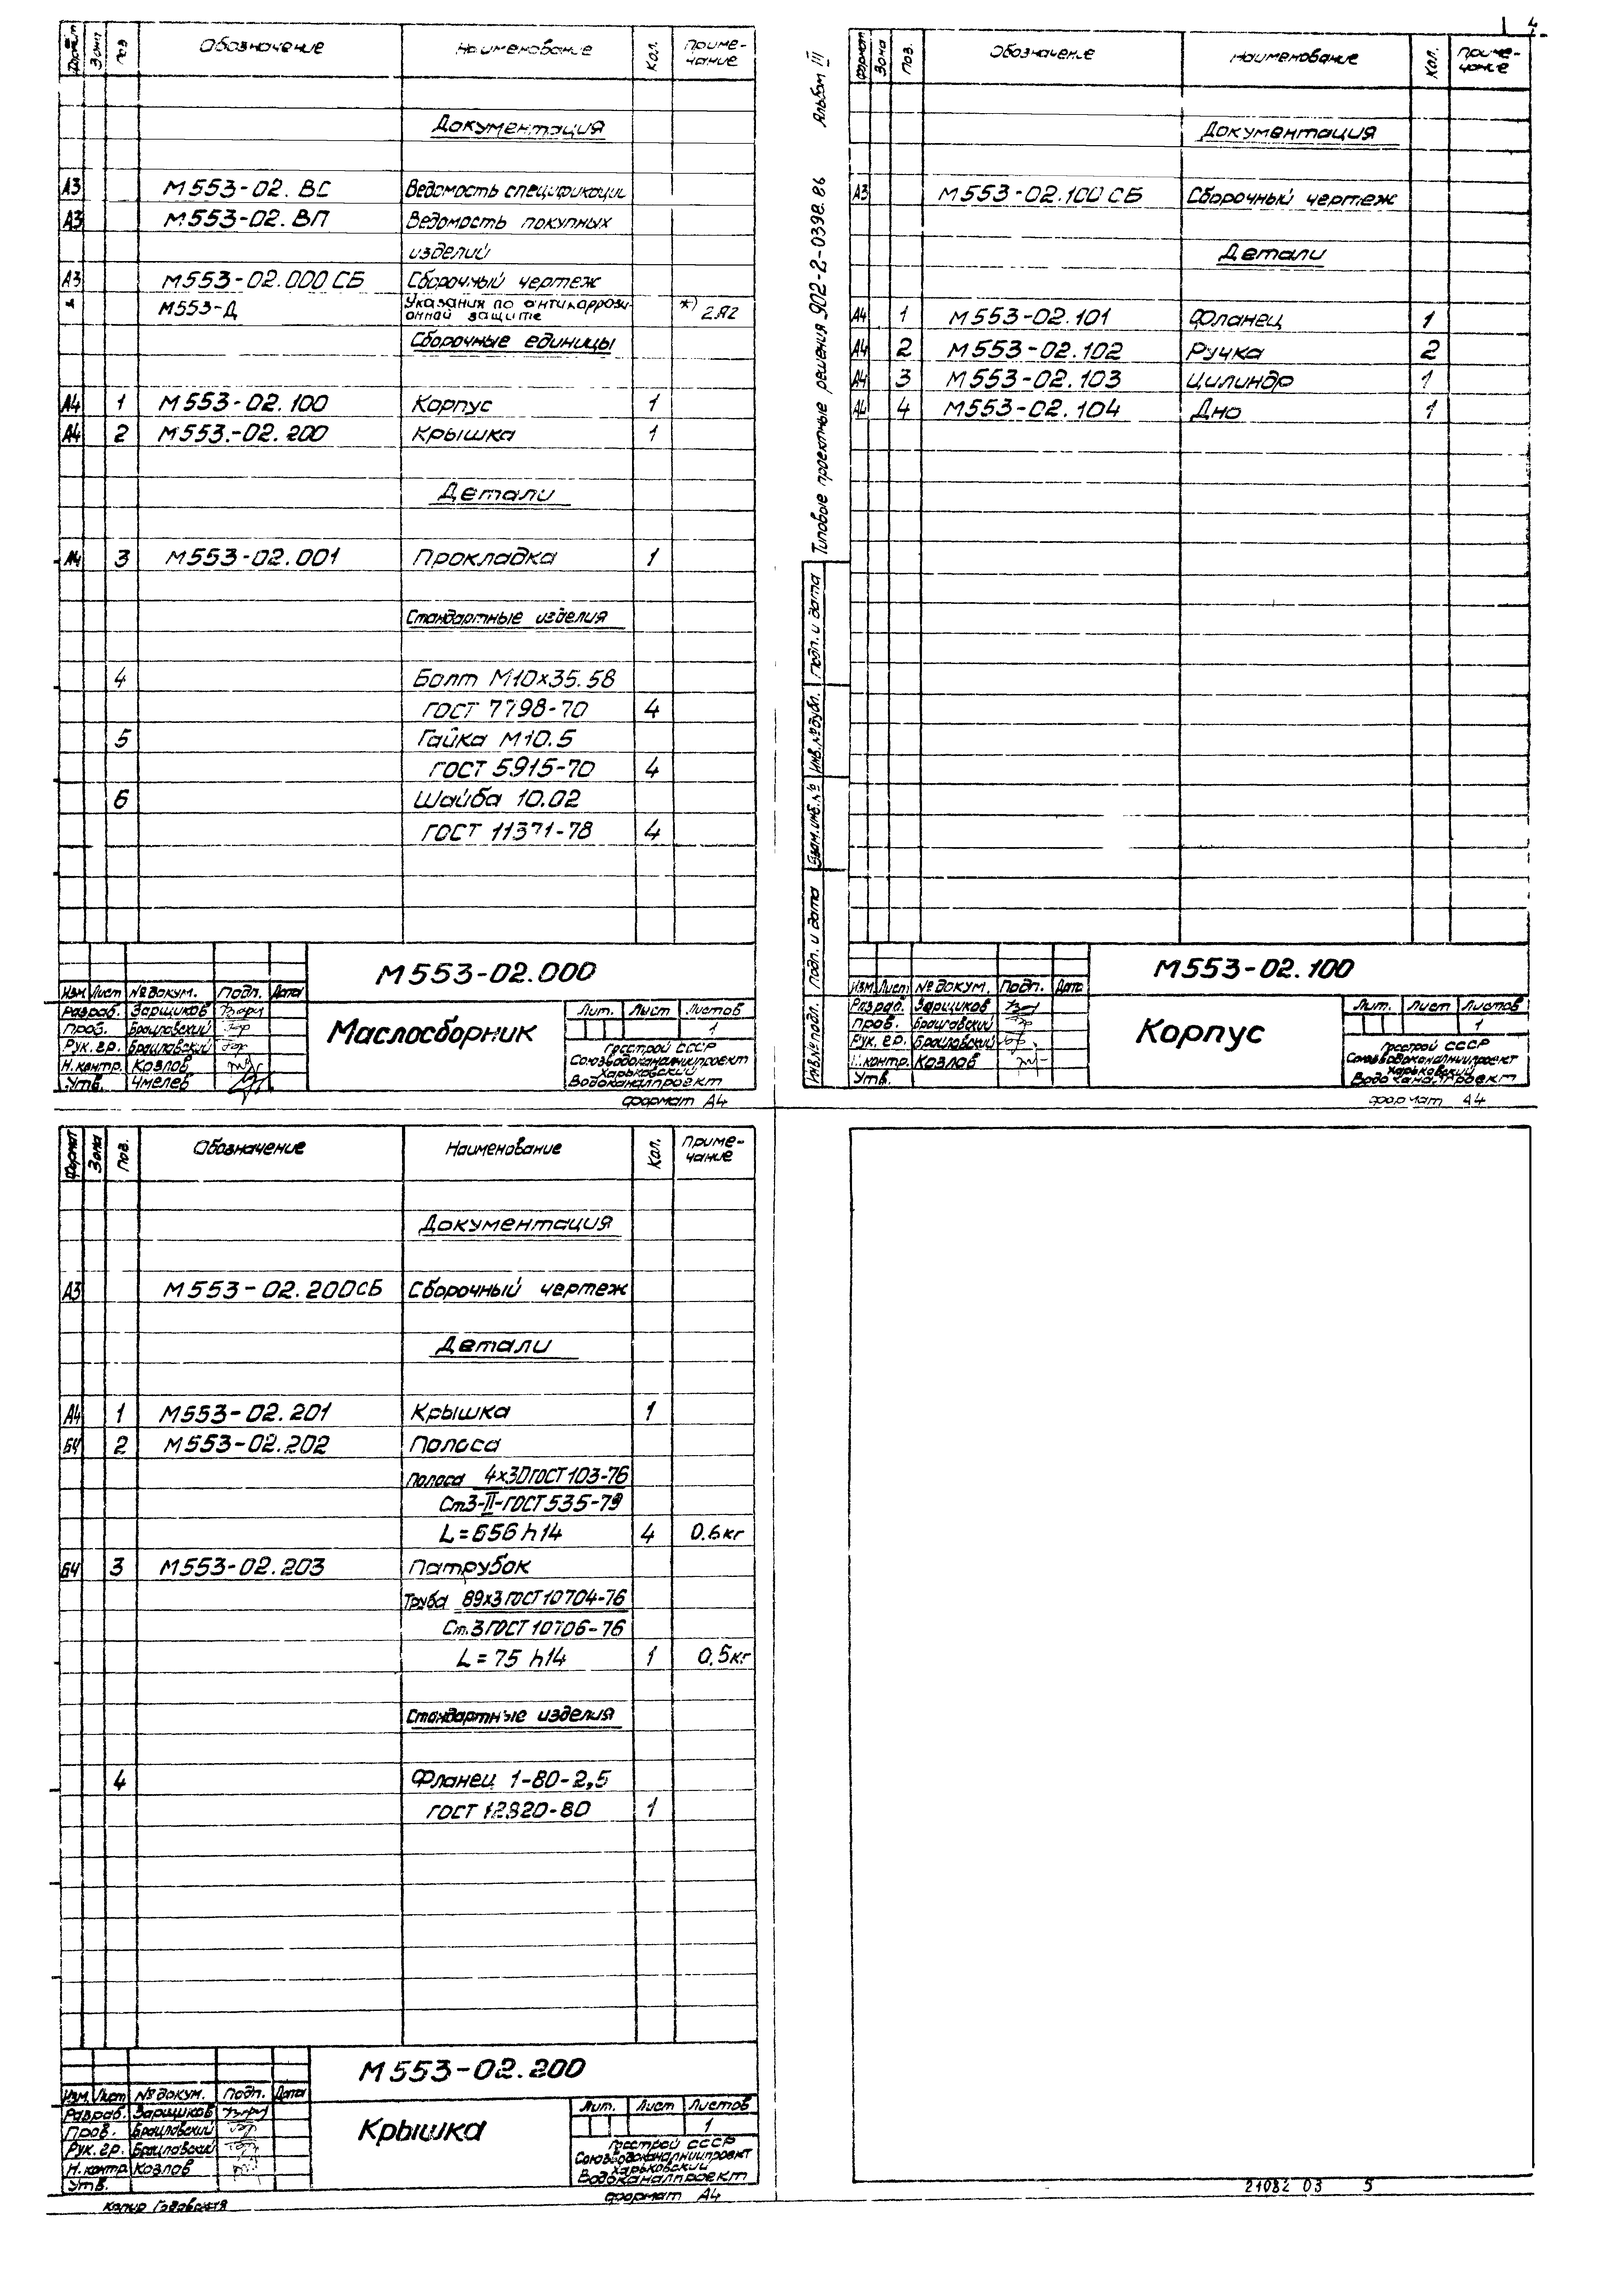 Формат Зона Поз Обозначение Наименование Кол. Приме-
чание
Документация
А3 М553-02. ВС Ведомость спецификаци
А3 М553-02. ВП Ведомость покупных
изделий
А3 М553-02.000 СБ Сборочный чертеж
* М553-Д Указания по антикоррози-
онной защите *) 2А2
Сборочные единицы
А4 1 М553-02.100 Корпус 1
А4 2 М553.-02.200 Крышка 1
Детали
А4 3 М553-02.001 Прокладка 1
Стандартные изделия
4 Болт М10х35.58
ГОСТ 7798-70 4
5 Гайка М10.5
ГОСТ 5915-70 4
6 Шайба 10.02
ГОСТ 11371-78 4
М553-02.000
Изм Лист № докум. Подп. Дата
Разраб. Зарщиков
Пров. Брацлавский
Рук. гр. Брацлавский
Н. контр. Козлов
Утв. Чмелев
Маслосборник
Лит. Лист Листов
1
Госстрой СССР
Союзводоканалниипроект
Харьковский
Водоканалпроект
формат А4
4
Альбом III
Типовые проектные решения 902-2-0398.86
Подп. и дата
Инв. № дубл.
Взам. инв. №
Подп. и дата
Инв. № подл.
Формат Зона Поз. Обозначение Наименование Кол. Приме-
чание
Документация
А3 М553-02.100 СБ Сборочный чертеж
Детали
А4 1 М553-02.101 Фланец 1
А4 2 М553-02.102 Ручка 2
А4 3 М553-02.103 Цилиндр 1
А4 4 М553-02.104 Дно 1
М553-02.100
Изм. Лист № докум. Подп. Дата
Разраб. Зарщиков
Пров. Брацлавский
Рук. гр. Брацлавский
Н.контр. Козлов
Утв.
Корпус
Лит. Лист Листов
1
Госстрой СССР
Союзводоканалниипроект
Харьковский
Водоканалпроект
формат А4
Формат Зона Поз. Обозначение Наименование Кол. Приме-
чание
Документация
А3 М553-02.200СБ Сборочный чертеж
Детали
А4 1 М553-02.201 Крышка 1
БЧ 2 М553-02.202 Полоса
Полоса 4х30 ГОСТ 103-76
Ст3-II-ГОСТ 535-79
L=656 h14 4 0.6кг
БЧ 3 М553-02.203 Патрубок
Труба 89х3 ГОСТ 10704-76
Ст.3 ГОСТ 10706-76
L=75 h14 1 0.5кг
Стандартные изделия
4 Фланец 1-80-2,5
ГОСТ 12820-80 1
М553-02.200
Изм. Лист № докум. Подп. Дата
Разраб. Зарщиков
Пров. Брацлавский
Рук. гр. Брацлавский
Н. контр. Козлов
Утв.
Крышка
Лит. Лист Листов
1
Госстрой СССР
Союзводоканалниипроект
Харьковский
Водоканалпроект
формат А4
копир
21082 03 5